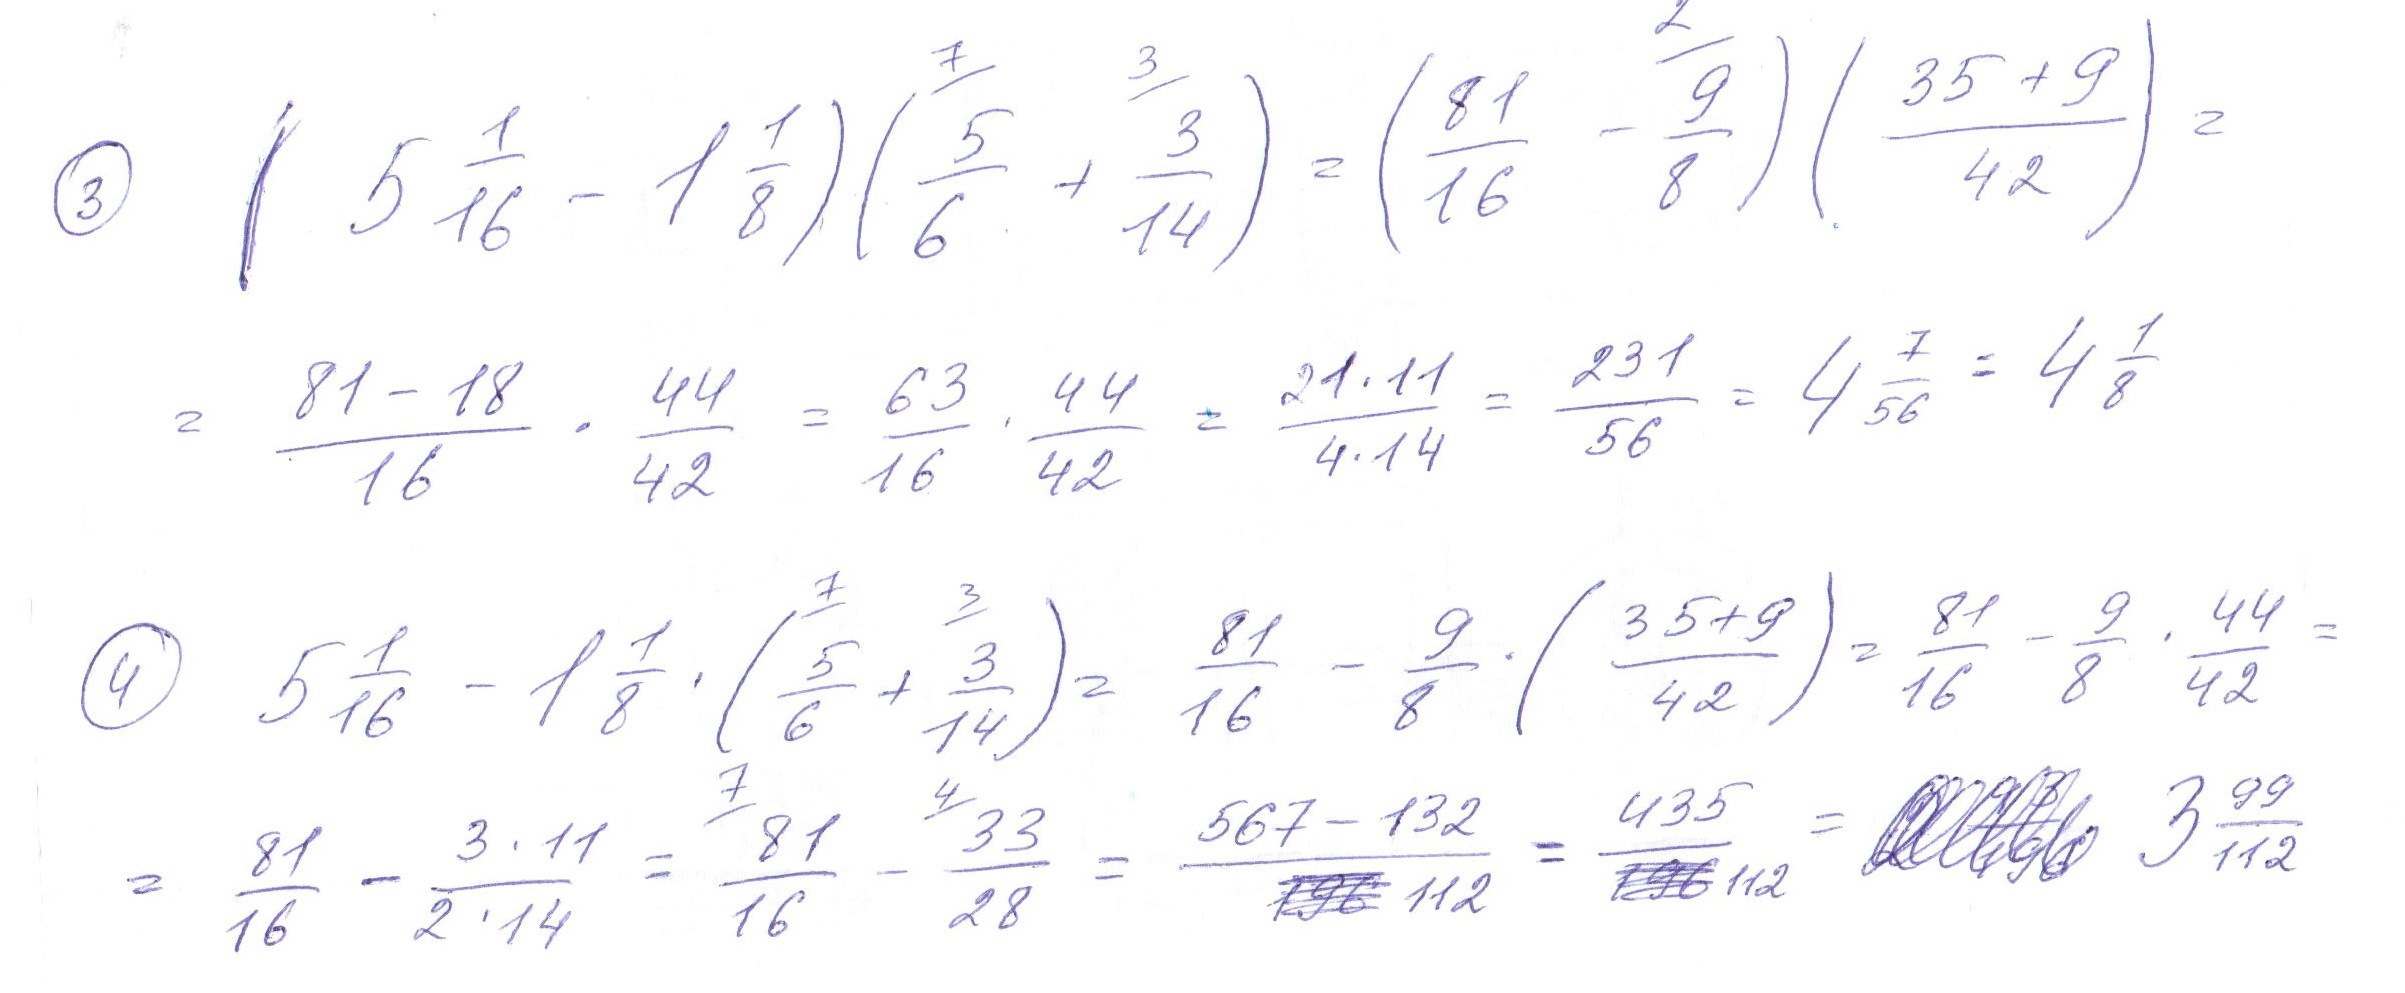 ③ (5 1/16 - 1 1/8)(5/6 7/ + 3/14 3/) = (81/16 - 9/8 2/)((35+9)/42) =
= (81-18)/16 · 44/42 = 63/16 · 44/42 = (21·11)/(4·14) = 231/56 = 4 7/56 = 4 1/8
④ 5 1/16 - 1 1/8 · (5/6 7/ + 3/14 3/) = 81/16 - 9/8 · ((35+9)/42) = 81/16 - 9/8 · 44/42 =
= 81/16 - (3·11)/(2·14) = 81/16 7/ - 33/28 4/ = (567-132)/112 = 435/112 = 3 99/112